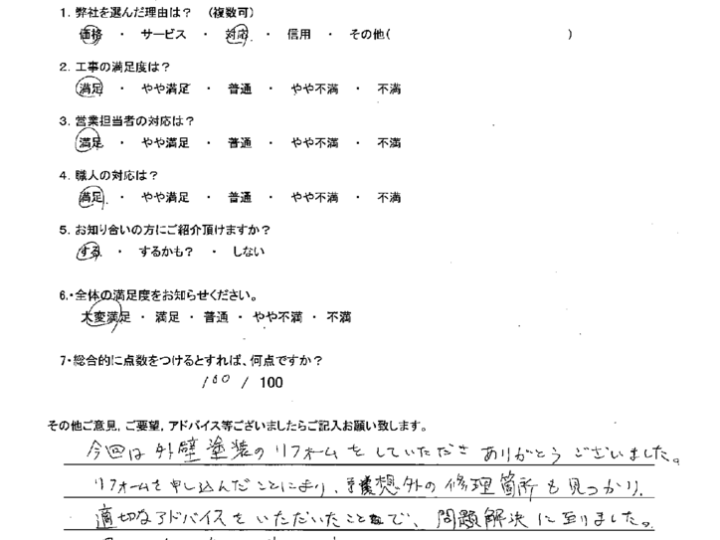 1. 弊社を選んだ理由は? (複数可)
価格 ・ サービス ・ 対応 ・ 信用 ・ その他( )
2. 工事の満足度は?
満足 ・ やや満足 ・ 普通 ・ やや不満 ・ 不満
3. 営業担当者の対応は?
満足 ・ やや満足 ・ 普通 ・ やや不満 ・ 不満
4. 職人の対応は?
満足 ・ やや満足 ・ 普通 ・ やや不満 ・ 不満
5. お知り合いの方にご紹介頂けますか?
する ・ するかも? ・ しない
6.・全体の満足度をお知らせください。
大変満足 ・ 満足 ・ 普通 ・ やや不満 ・ 不満
7・総合的に点数をつけるとすれば、何点ですか?
100 / 100
その他ご意見, ご要望, アドバイス等ございましたらご記入お願い致します。
今回は外壁塗装のリフォームをしていただき ありがとうございました。
リフォームを申し込んだことにより、予想外の修理箇所も見つかり、
適切なアドバイスをいただいたことで、問題解決に至りました。